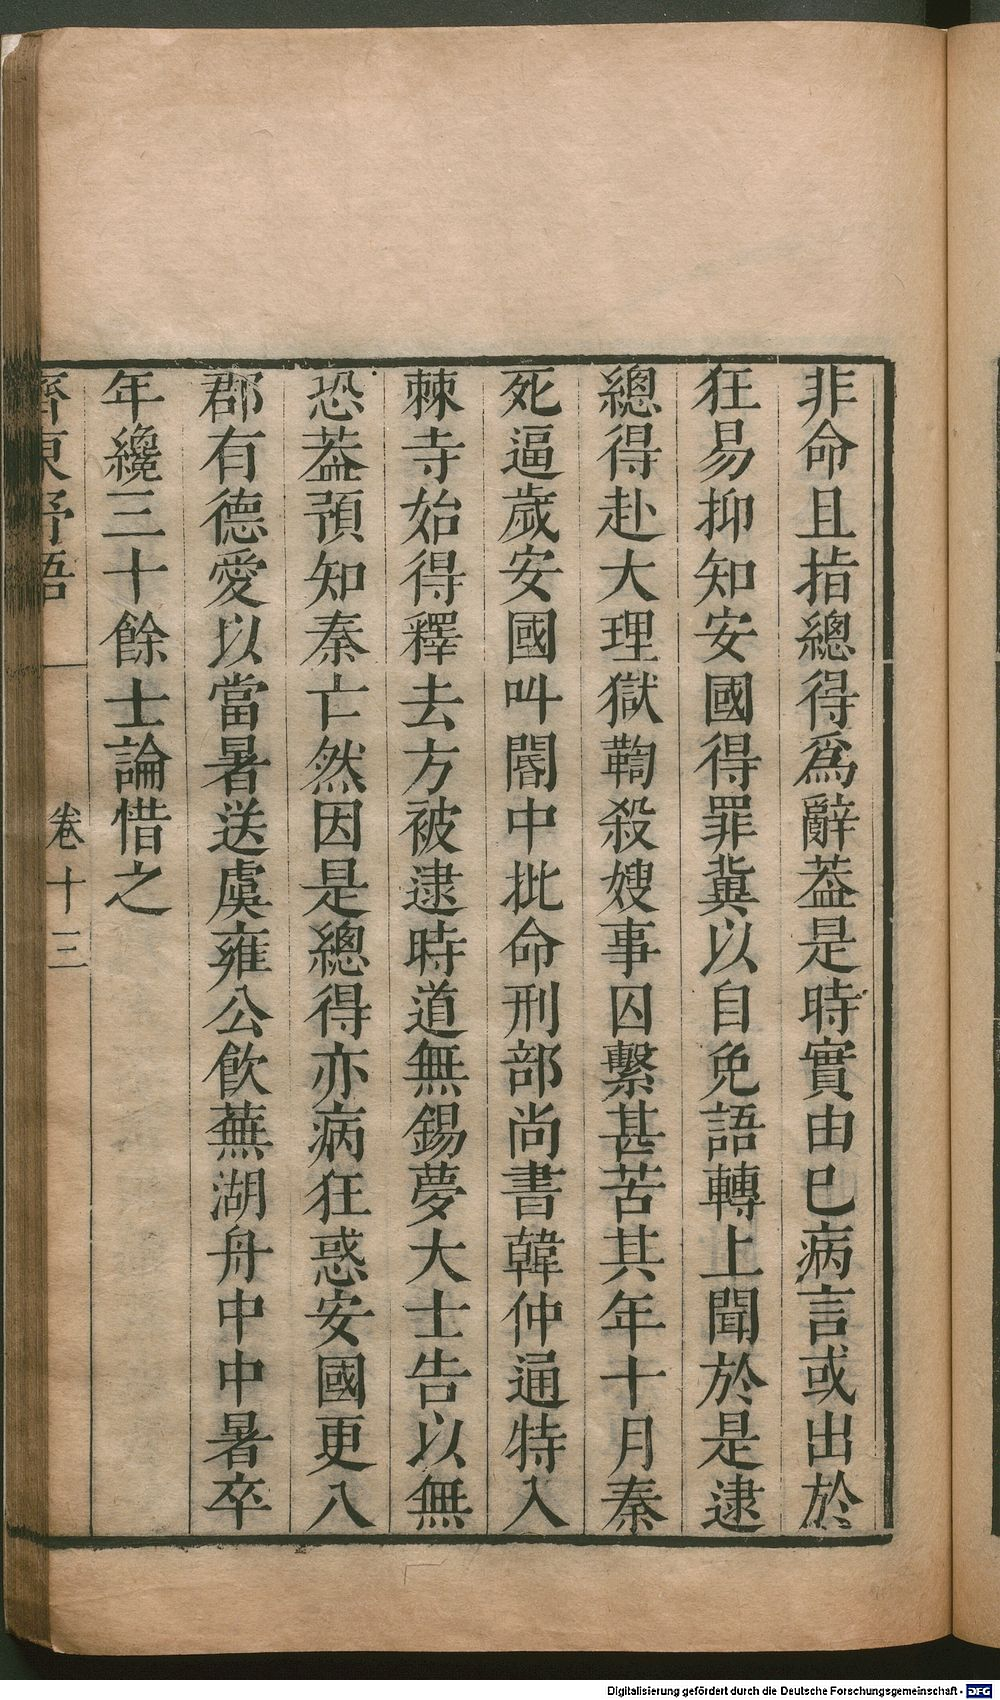 非命且指總得爲辭葢是時實由巳病言或出於
狂易抑知安國得罪冀以自免語轉上聞於是逮
總得赴大理獄鞫殺嫂事囚繫甚苦其年十月秦
死逼歲安國叫閽中批命刑部尚書韓仲通特入
棘寺始得釋去方被逮時道無錫夢大士告以無
恐葢預知秦亡然因是總得亦病狂惑安國更八
郡有德愛以當暑送虞雍公飲蕪湖舟中中暑卒
年纔三十餘士論惜之
齊東野語
卷十三
Digitalisierung gefördert durch die Deutsche Forschungsgemeinschaft - DFG